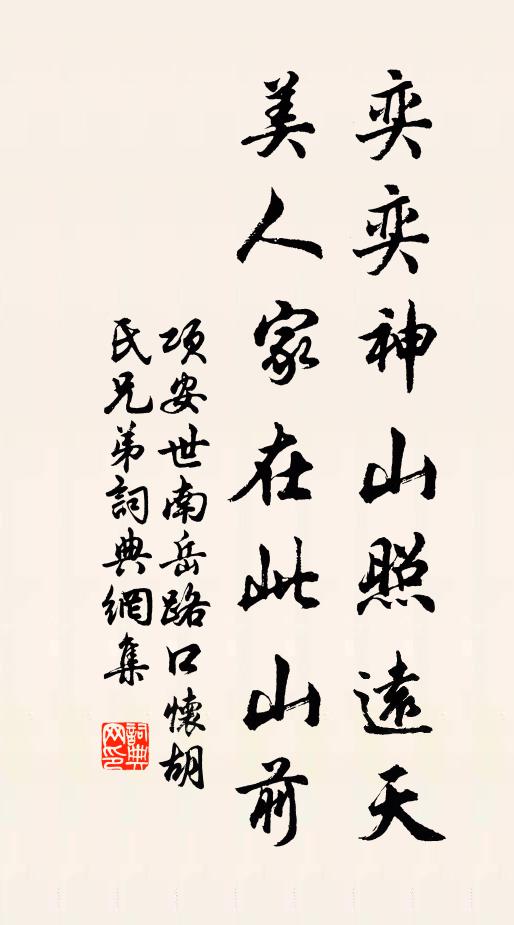 奕奕神山照遠天
美人家在此山前
項安世南岳路口懷胡
氏兄弟詞典網集
詞典
网印